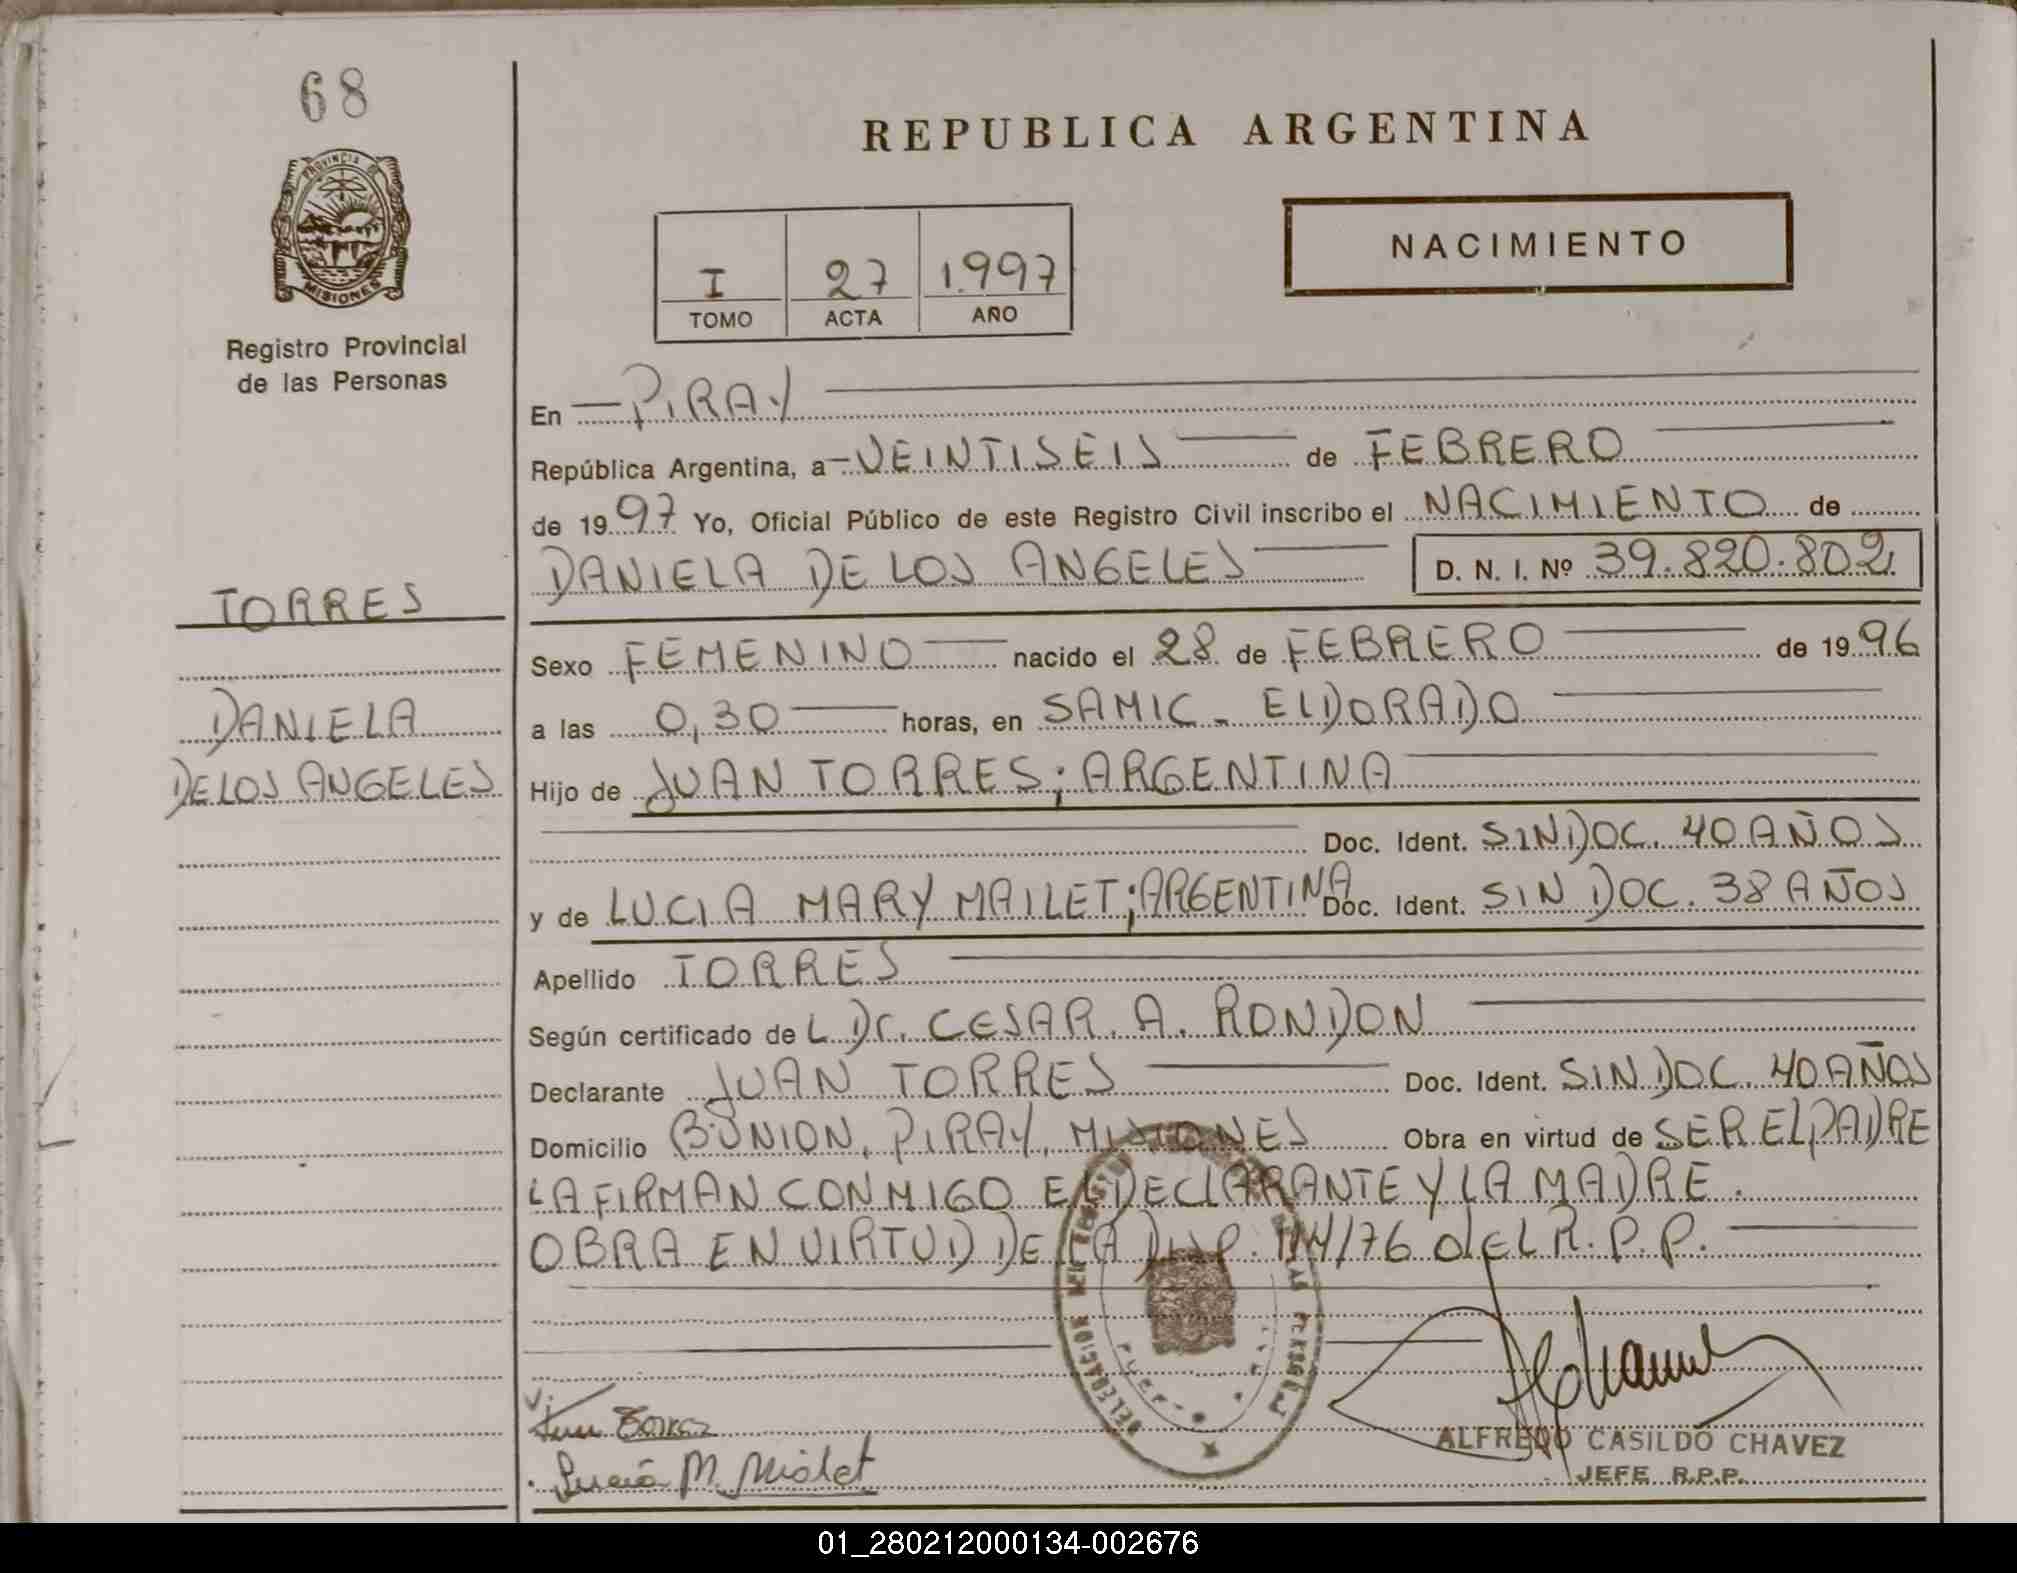 68
PROVINCIA DE
MISIONES
Registro Provincial
de las Personas
TORRES
DANIELA
DE LOS ANGELES
REPUBLICA ARGENTINA
I 27 1.997
TOMO ACTA AÑO
NACIMIENTO
En PIRAY
República Argentina, a VEINTISEIS de FEBRERO
de 19 97 Yo, Oficial Público de este Registro Civil inscribo el NACIMIENTO de
DANIELA DE LOS ANGELES D. N. I. Nº 39.820.802
Sexo FEMENINO nacido el 28 de FEBRERO de 19 96
a las 0,30 horas, en SAMIC - ELDORADO
Hijo de JUAN TORRES; ARGENTINA
Doc. Ident. SIN DOC. 40 AÑOS
y de LUCIA MARY MAILET; ARGENTINA Doc. Ident. SIN DOC. 38 AÑOS
Apellido TORRES
Según certificado de L Dr. CESAR. A. RONDON
Declarante JUAN TORRES Doc. Ident. SIN DOC. 40 AÑOS
Domicilio B. UNION, PIRAY, MISIONES Obra en virtud de SER EL PADRE
LA FIRMAN CONMIGO EL DECLARANTE Y LA MADRE.
OBRA EN VIRTUD DE LA DISP. 114/76 del R. P. P.
DELEGACION DEL REGISTRO LAS PERSONAS
Lucia M. Mialet
ALFREDO CASILDO CHAVEZ
JEFE R.P.P.
01_280212000134-002676